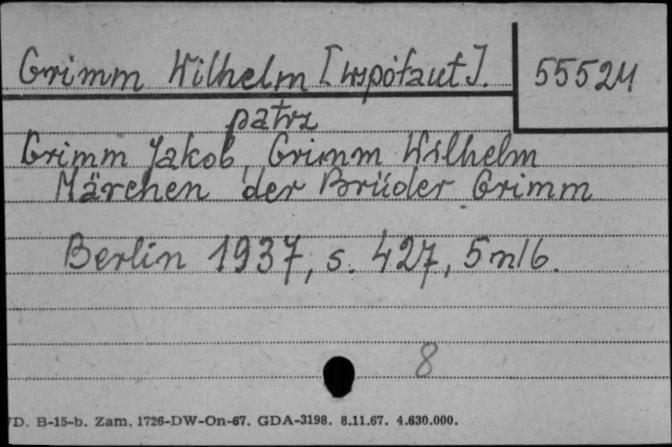 Grimm Wilhelm [współaut]. 55524
patrz
Grimm Jakob, Grimm Wilhelm
Märchen der Brüder Grimm
Berlin 1937, s. 427,
8
D. B-15-b. Zam. 1726-DW-On-67. GDA-3198. 8.11.67. 4.630.000.